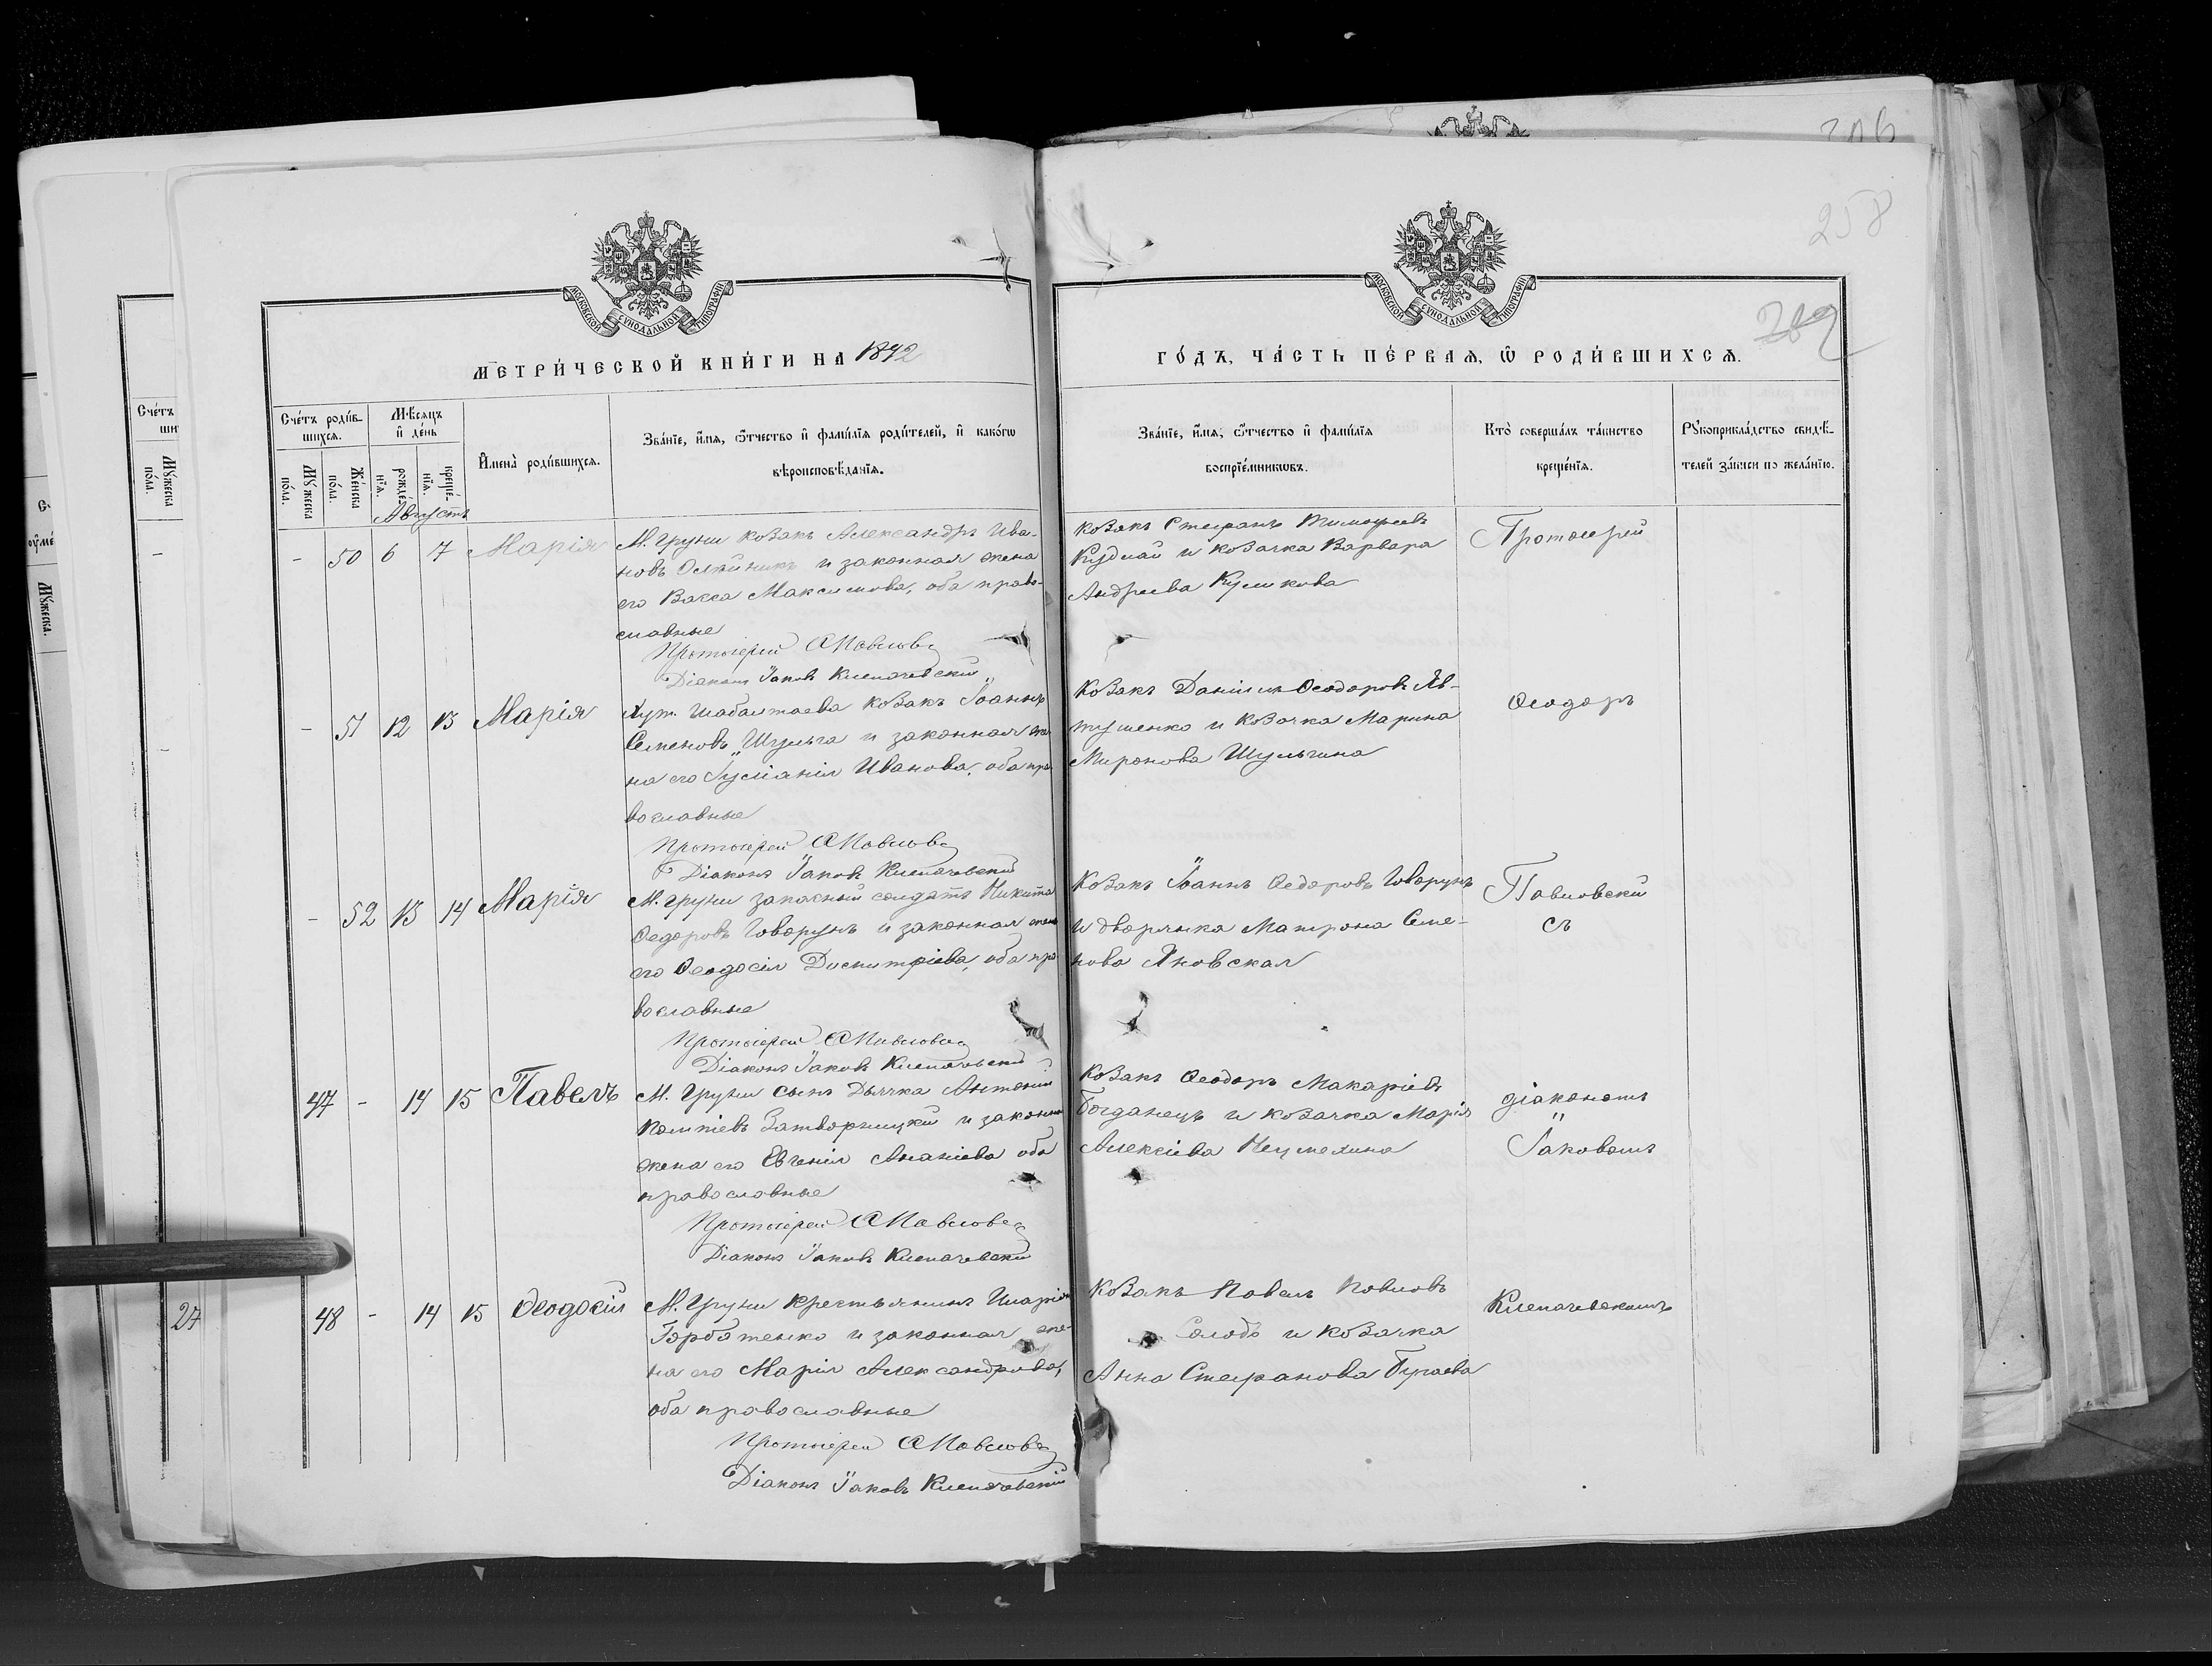 206
258
МОСКОВСКОЙ СѴНОДАЛЬНОЙ ТИПОГРАФІИ
МОСКОВСКОЙ СѴНОДАЛЬНОЙ ТИПОГРАФІИ
МЕТРИ́ЧЕСКОЙ КНИ́ГИ НА 1892
ГО́ДЪ, ЧА́СТЬ ПЕ́РВАЯ, Ѿ РОДИ́ВШИХСЯ.
Счéтъ роди́в-
шихся.
Мѣсяцъ
и де́нь
Мꙋ́жеска
по́ла.
Же́нска
по́ла.
рожде́-
нїя.
креще́-
нїя.
Имена̀ роди́вшихся.
Зва́нїе, и́мя, ѻ҆́тчество и фами́лїя роди́телей, и како́гѡ
вѣроисповѣ́данїя.
Зва́нїе, и́мя, ѻ҆́тчество и фами́лїя
воспрїе́мникѡвъ.
Кто̀ соверша́лъ та́инство
креще́нїя.
Рꙋкоприкла́дство свидѣ́-
телей за́писи по жела́нїю.
Августъ
- 50 6 7 Марія
М. Груни козакъ Александръ Ива-
новъ Олѣйникъ и законная жена
его Васса Максимова, оба право-
славные
Протоіерей
Діаконъ Іаковъ Клепачевскій
Козакъ Стефанъ Тимофеевъ
и козачка Варвара
Андреева Куликова
Протоіерей
- 51 12 13 Марія
Хут. козакъ Іоаннъ
Семеновъ Шульга и законная же-
на его Іуліанія Иванова, оба пра-
вославные
Протоіерей
Діаконъ Іаковъ Клепачевскій
Козакъ Даніилъ Ѳеодоровъ Яв-
тушенко и козачка Марина
Миронова Шульгина
Ѳеодоръ
- 52 13 14 Марія
М. Груни запасный солдатъ Никита
Ѳедоровъ Говорунъ и законная жена
его Ѳеодосія Димитріева, оба пра-
вославные
Протоіерей
Діаконъ Іаковъ Клепачевскій
Козакъ Іоаннъ Ѳедоровъ Говорунъ
и дворянка Матрона Семе-
нова Яновская
Павловскій
съ
47 - 14 15 Павелъ
М. Груни сынъ Дьячка Антоній
и законная
жена его Евгенія Ананіева оба
православные
Протоіерей
Діаконъ Іаковъ Клепачевскій
Козакъ Ѳеодоръ Макаріевъ
Богданецъ и козачка Марія
Алексіева
діакономъ
Іаковомъ
48 - 14 15 Ѳеодосій
М. Груни крестьянинъ Иларіонъ
Горбатенко и законная же-
на его Марія Александрова,
оба православные
Протоіерей
Діаконъ Іаковъ Клепачевскій
Козакъ Павелъ Павловъ
Солодъ и козачка
Анна Стефанова Бугаева
Клепачевскимъ
27